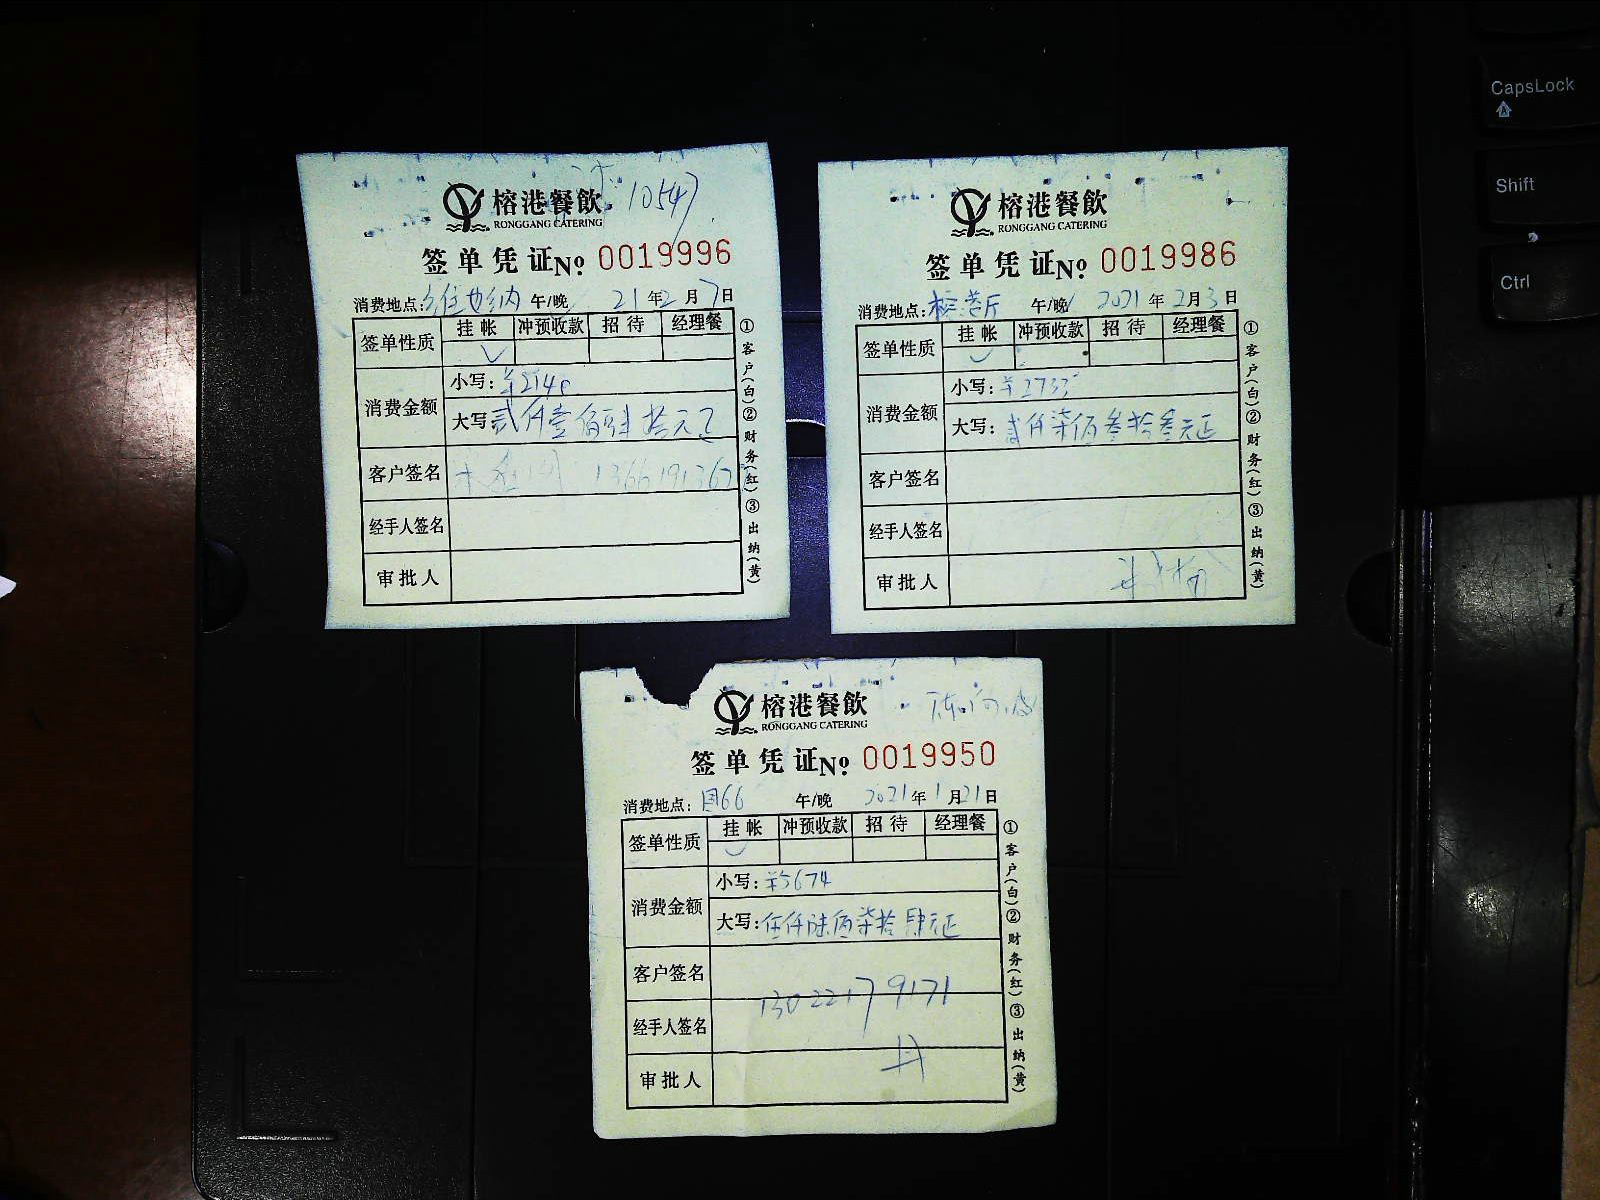 榕港餐飲 10547
RONGGANG CATERING
签单凭证No 0019996
消费地点: 维也纳 午/晚 21年2月7日
签单性质 挂帐 冲预收款 招待 经理餐
✓
消费金额 小写: ¥2140
大写 贰仟壹佰肆拾元正
客户签名
经手人签名
审批人
①客户(白)②财务(红)③出纳(黄)
榕港餐飲
RONGGANG CATERING
签单凭证No 0019986
消费地点: 榕港厅 午/晚 2021年2月3日
签单性质 挂帐 冲预收款 招待 经理餐
✓
消费金额 小写: ¥2733
大写: 贰仟柒佰叁拾叁元正
客户签名
经手人签名
审批人
①客户(白)②财务(红)③出纳(黄)
榕港餐飲
RONGGANG CATERING
签单凭证No 0019950
消费地点: 国66 午/晚 2021年1月21日
签单性质 挂帐 冲预收款 招待 经理餐
✓
消费金额 小写: ¥5674
大写: 伍仟陆佰柒拾肆元正
客户签名
13022179171
经手人签名
审批人
①客户(白)②财务(红)③出纳(黄)
CapsLock
Shift
Ctrl